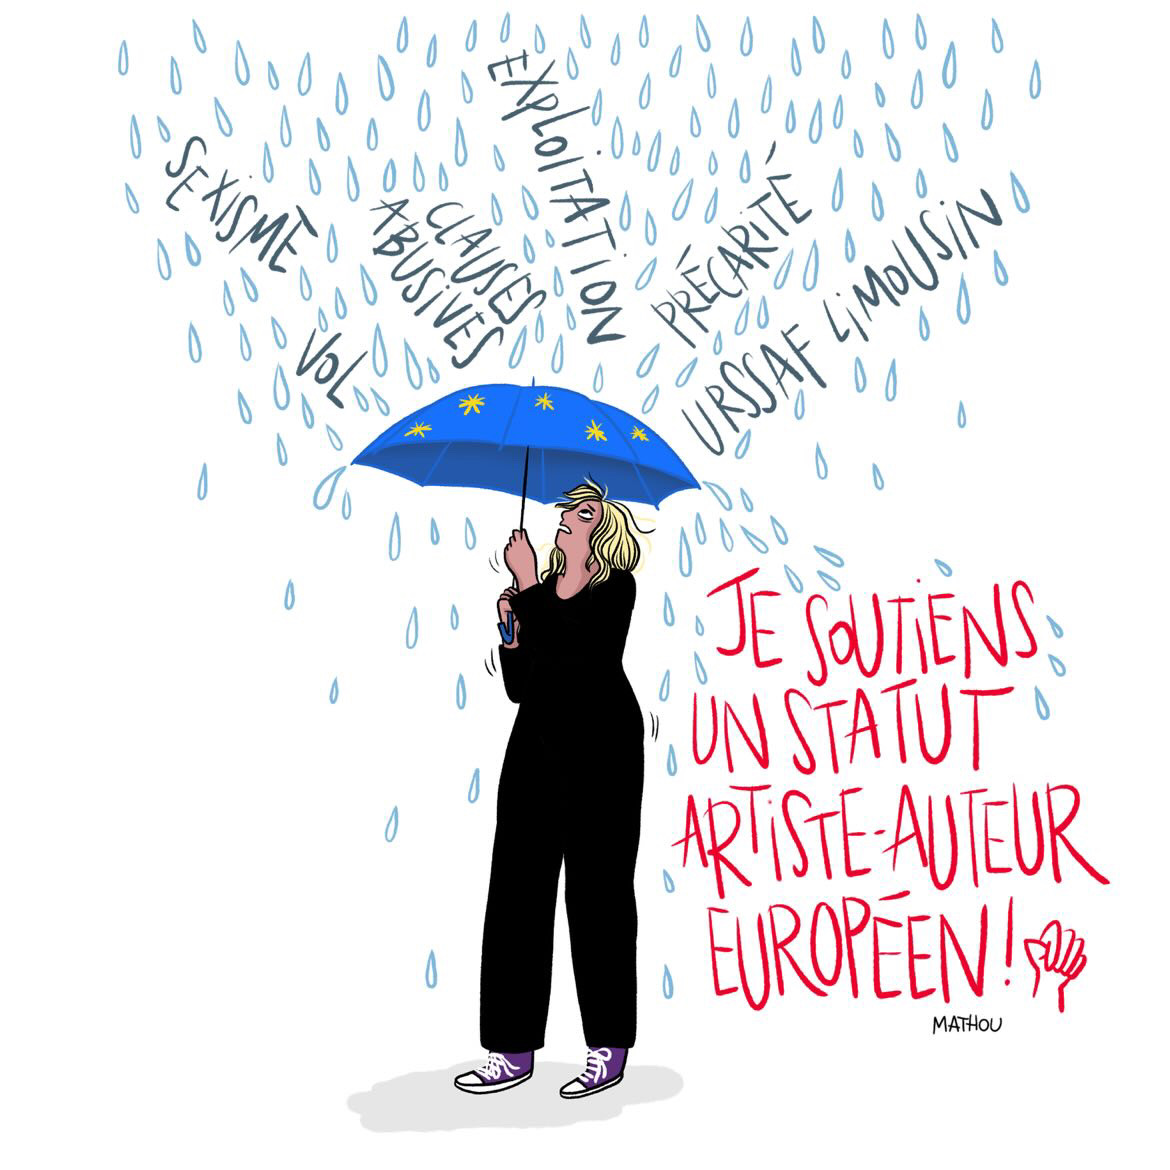 EXPLOITATION
SEXISME
CLAUSES
ABUSIVES
PRÉCARITÉ
URSSAF LIMOUSIN
VOL
JE SOUTIENS
UN STATUT
ARTISTE-AUTEUR
EUROPÉEN !
MATHOU